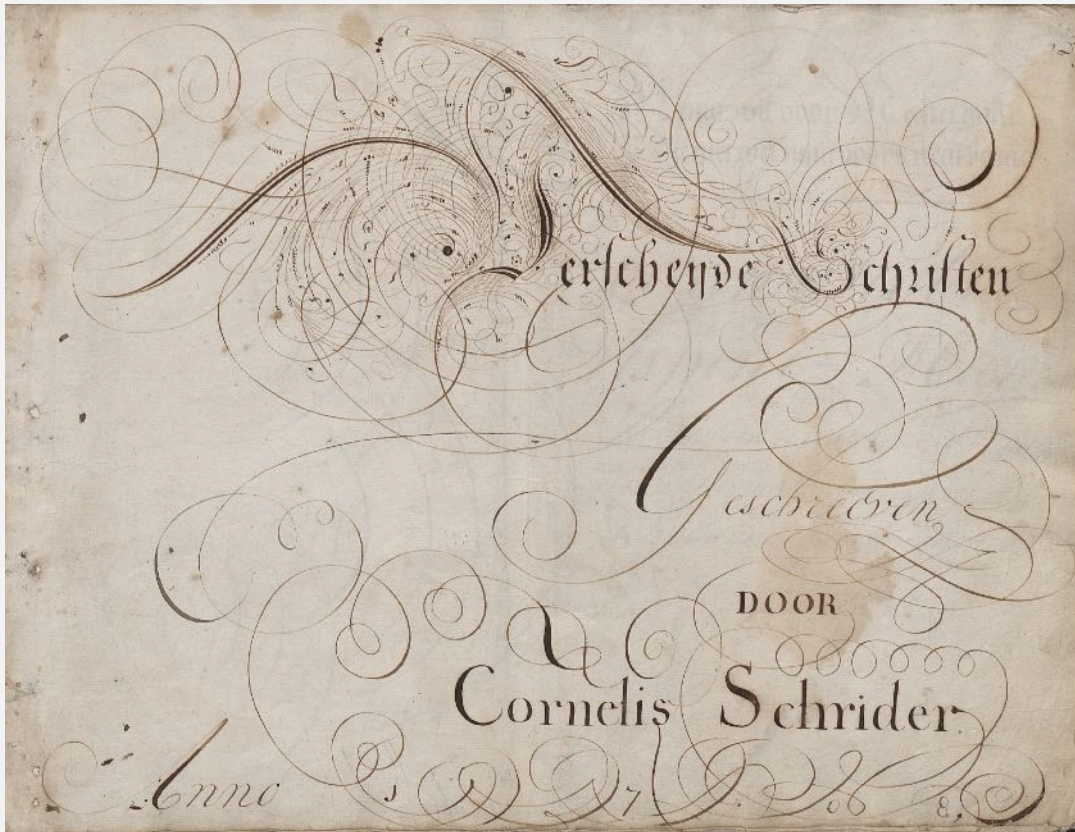 Verscheyde Schriften
Geschreeven
DOOR
Cornelis Schrider
Anno 1768,